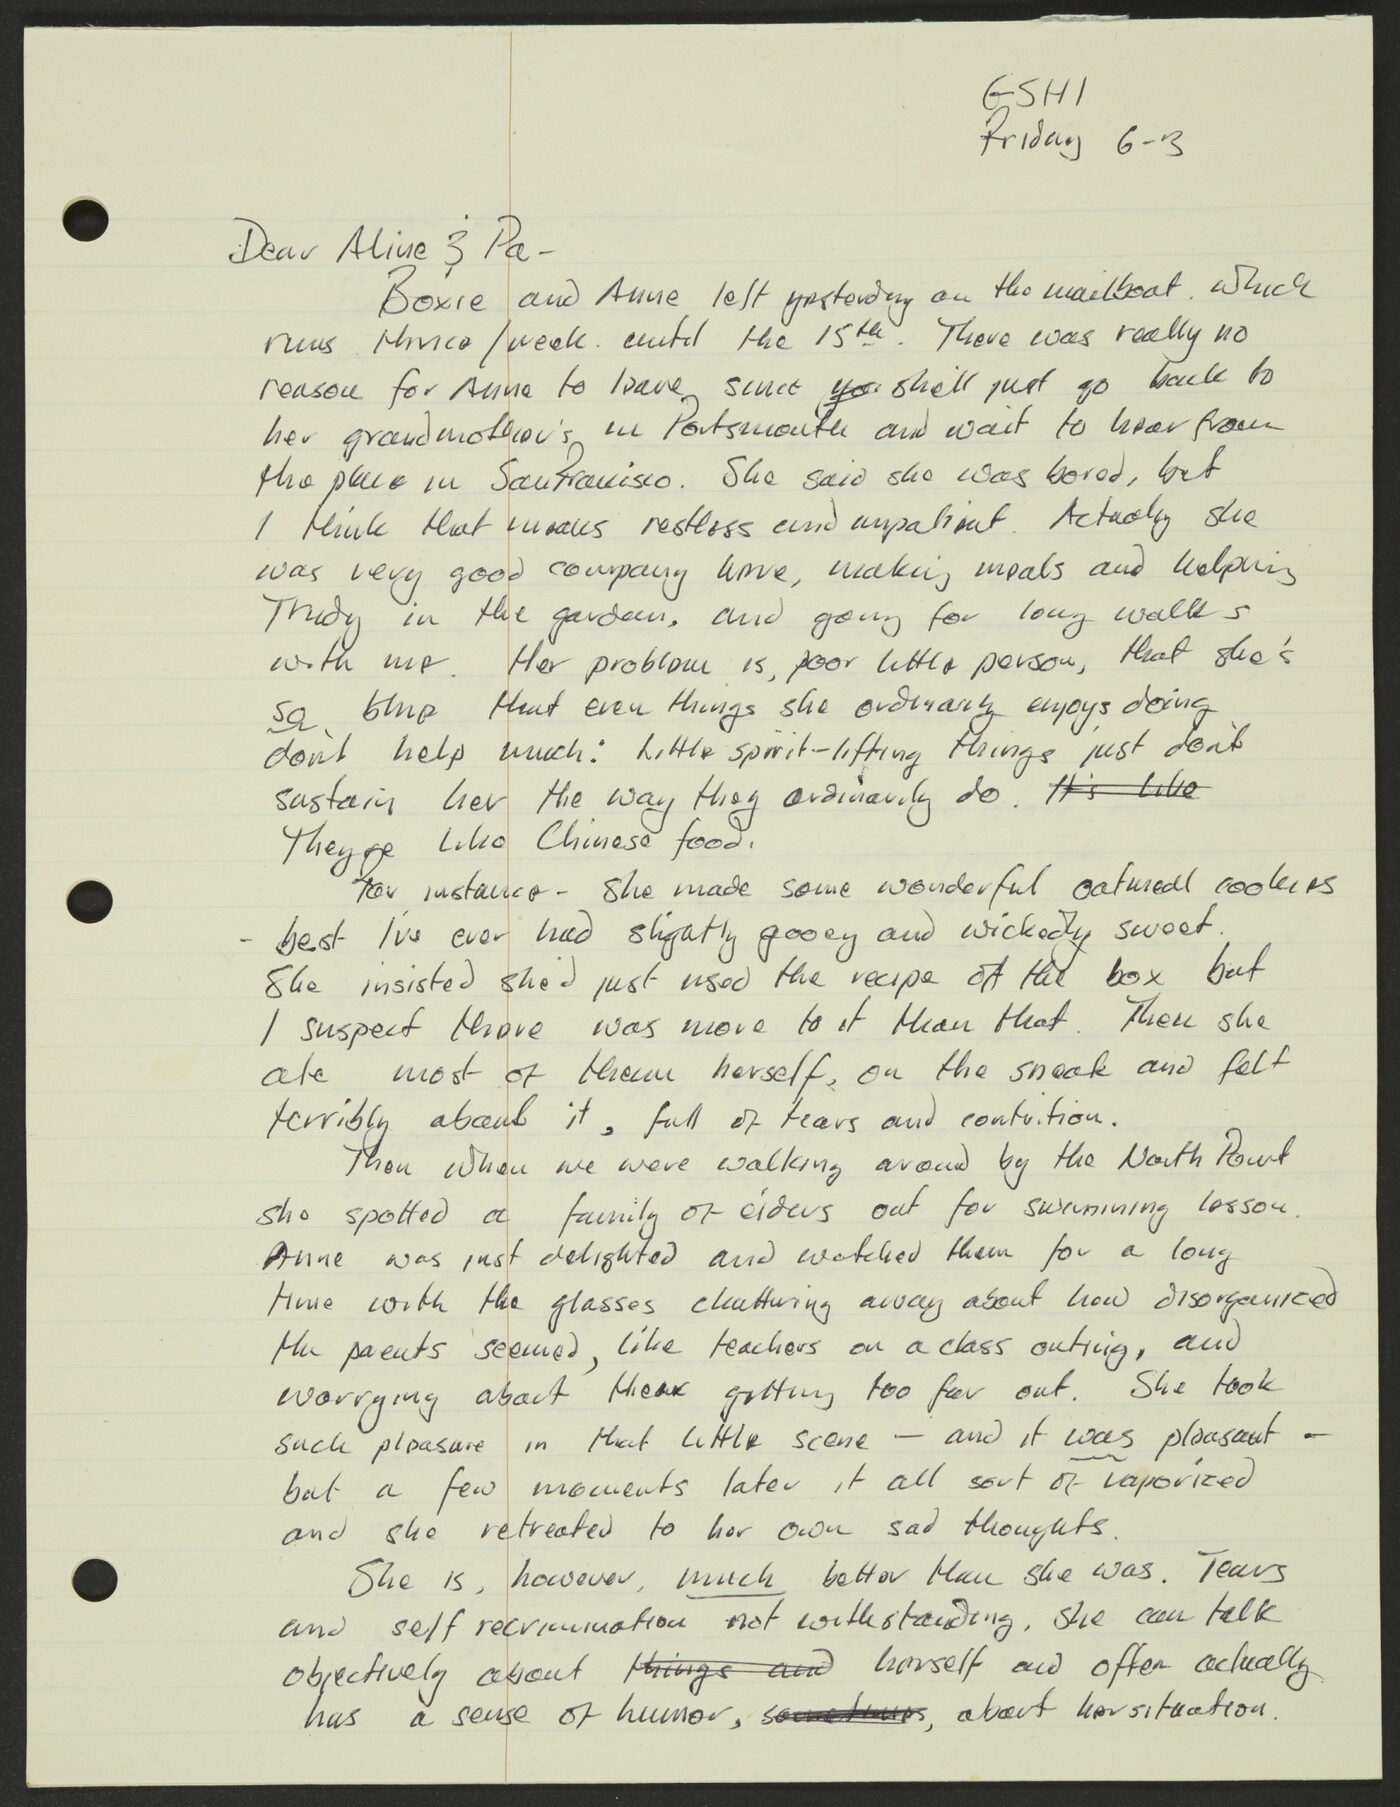 GSHI
Friday 6-3
Dear Aline & Pa-
Boxie and Anne left yesterday on the mailboat. which
runs thrice/week. until the 15th. There was really no
reason for Anne to leave, since you she'll just go back to
her grandmother's, in Portsmouth and wait to hear from
the place in San Francisco. She said she was bored, but
I think that means restless and impatient. Actually she
was very good company here, making meals and helping
Trudy in the garden, and going for long walks
with me. Her problem is, poor little person, that she's
so blue that even things she ordinarily enjoys doing
don't help much: little spirit-lifting things just don't
sustain her the way they ordinarily do. It's like
They're like Chinese food.
For instance- She made some wonderful oatmeal cookies
- best I've ever had slightly gooey and wickedly sweet.
She insisted she'd just used the recipe off the box but
I suspect there was more to it than that. Then she
ate most of them herself, on the sneak and felt
terribly about it, full of tears and contrition.
Then when we were walking around by the North Point
she spotted a family of eiders out for swimming lesson.
Anne was just delighted and watched them for a long
time with the glasses chattering away about how disorganized
the parents seemed, like teachers on a class outing, and
worrying about them getting too far out. She took
such pleasure in that little scene — and it was pleasant -
but a few moments later it all sort of vaporized
and she retreated to her own sad thoughts.
She is, however, much better than she was. Tears
and self recrimination not withstanding, she can talk
objectively about things and herself and often actually
has a sense of humor, sometimes, about her situation.